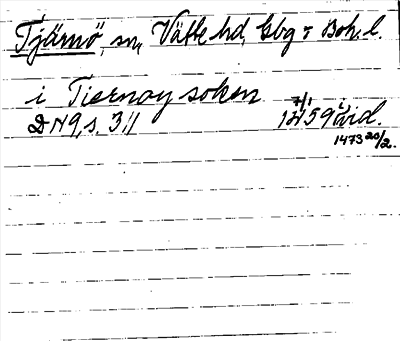 Tjärnö, sn, Vätte hd, Gbg o Boh. l.
i Tiernoy soken
DN 9, s. 311 7/1 1459 i vid.
1473 20/2.